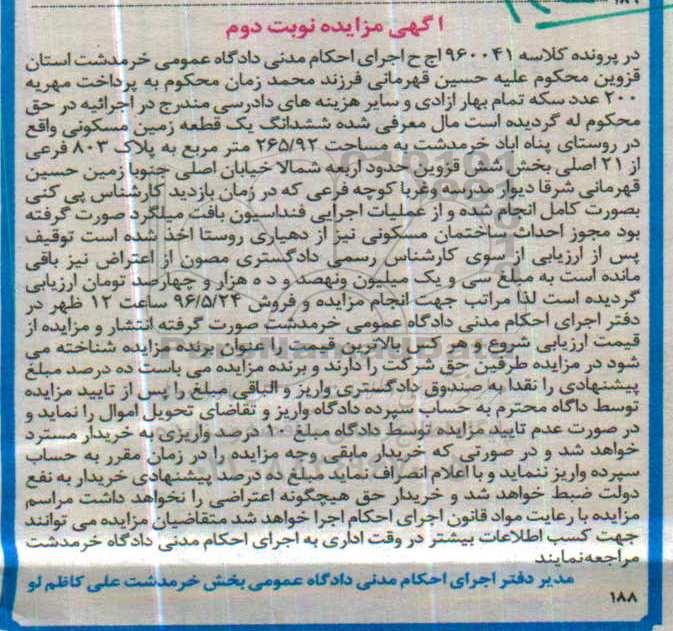 آگهی مزایده نوبت دوم
در پرونده کلاسه ۹۶۰۰۴۱ اج ح اجرای احکام مدنی دادگاه عمومی خرمدشت استان
قزوین محکوم علیه حسین قهرمانی فرزند محمد زمان محکوم به پرداخت مهریه
۲۰۰ عدد سکه تمام بهار ازادی و سایر هزینه های دادرسی مندرج در اجرائیه در حق
محکوم له گردیده است مال معرفی شده ششدانگ یک قطعه زمین مسکونی واقع
در روستای پناه اباد خرمدشت به مساحت ۲۶۵/۹۲ متر مربع به پلاک ۸۰۳ فرعی
از ۲۱ اصلی بخش شش قزوین حدود اربعه شمالا خیابان اصلی جنوبا زمین حسین
قهرمانی شرقا دیوار مدرسه وغربا کوچه فرعی که در زمان بازدید کارشناس پی کنی
بصورت کامل انجام شده و از عملیات اجرایی فنداسیون بافت میلگرد صورت گرفته
بود مجوز احداث ساختمان مسکونی نیز از دهیاری روستا اخذ شده است توقیف
پس از ارزیابی از سوی کارشناس رسمی دادگستری مصون از اعتراض نیز باقی
مانده است به مبلغ سی و یک میلیون ونهصد و د ه هزار و چهارصد تومان ارزیابی
گردیده است لذا مراتب جهت انجام مزایده و فروش ۹۶/۵/۲۴ ساعت ۱۲ ظهر در
دفتر اجرای احکام مدنی دادگاه عمومی خرمدشت صورت گرفته انتشار و مزایده از
قیمت ارزیابی شروع و هر کس بالاترین قیمت را عنوان برنده مزایده شناخته می
شود در مزایده طرفین حق شرکت را دارند و برنده مزایده می باست ده درصد مبلغ
پیشنهادی را نقدا به صندوق دادگستری واریز و الباقی مبلغ را پس از تایید مزایده
توسط داگاه محترم به حساب سپرده دادگاه واریز و تقاضای تحویل اموال را نماید و
در صورت عدم تایید مزایده توسط دادگاه مبلغ ۱۰ درصد واریزی به خریدار مسترد
خواهد شد و در صورتی که خریدار مابقی وجه مزایده را در زمان مقرر به حساب
سپرده واریز ننماید و با اعلام انصراف نماید مبلغ ده درصد پیشنهادی خریدار به نفع
دولت ضبط خواهد شد و خریدار حق هیچگونه اعتراضی را نخواهد داشت مراسم
مزایده با رعایت مواد قانون اجرای احکام اجرا خواهد شد متقاضیان مزایده می توانند
جهت کسب اطلاعات بیشتر در وقت اداری به اجرای احکام مدنی دادگاه خرمدشت
مراجعه‌نمایند
مدیر دفتر اجرای احکام مدنی دادگاه عمومی بخش خرمدشت علی کاظم لو
۱۸۸